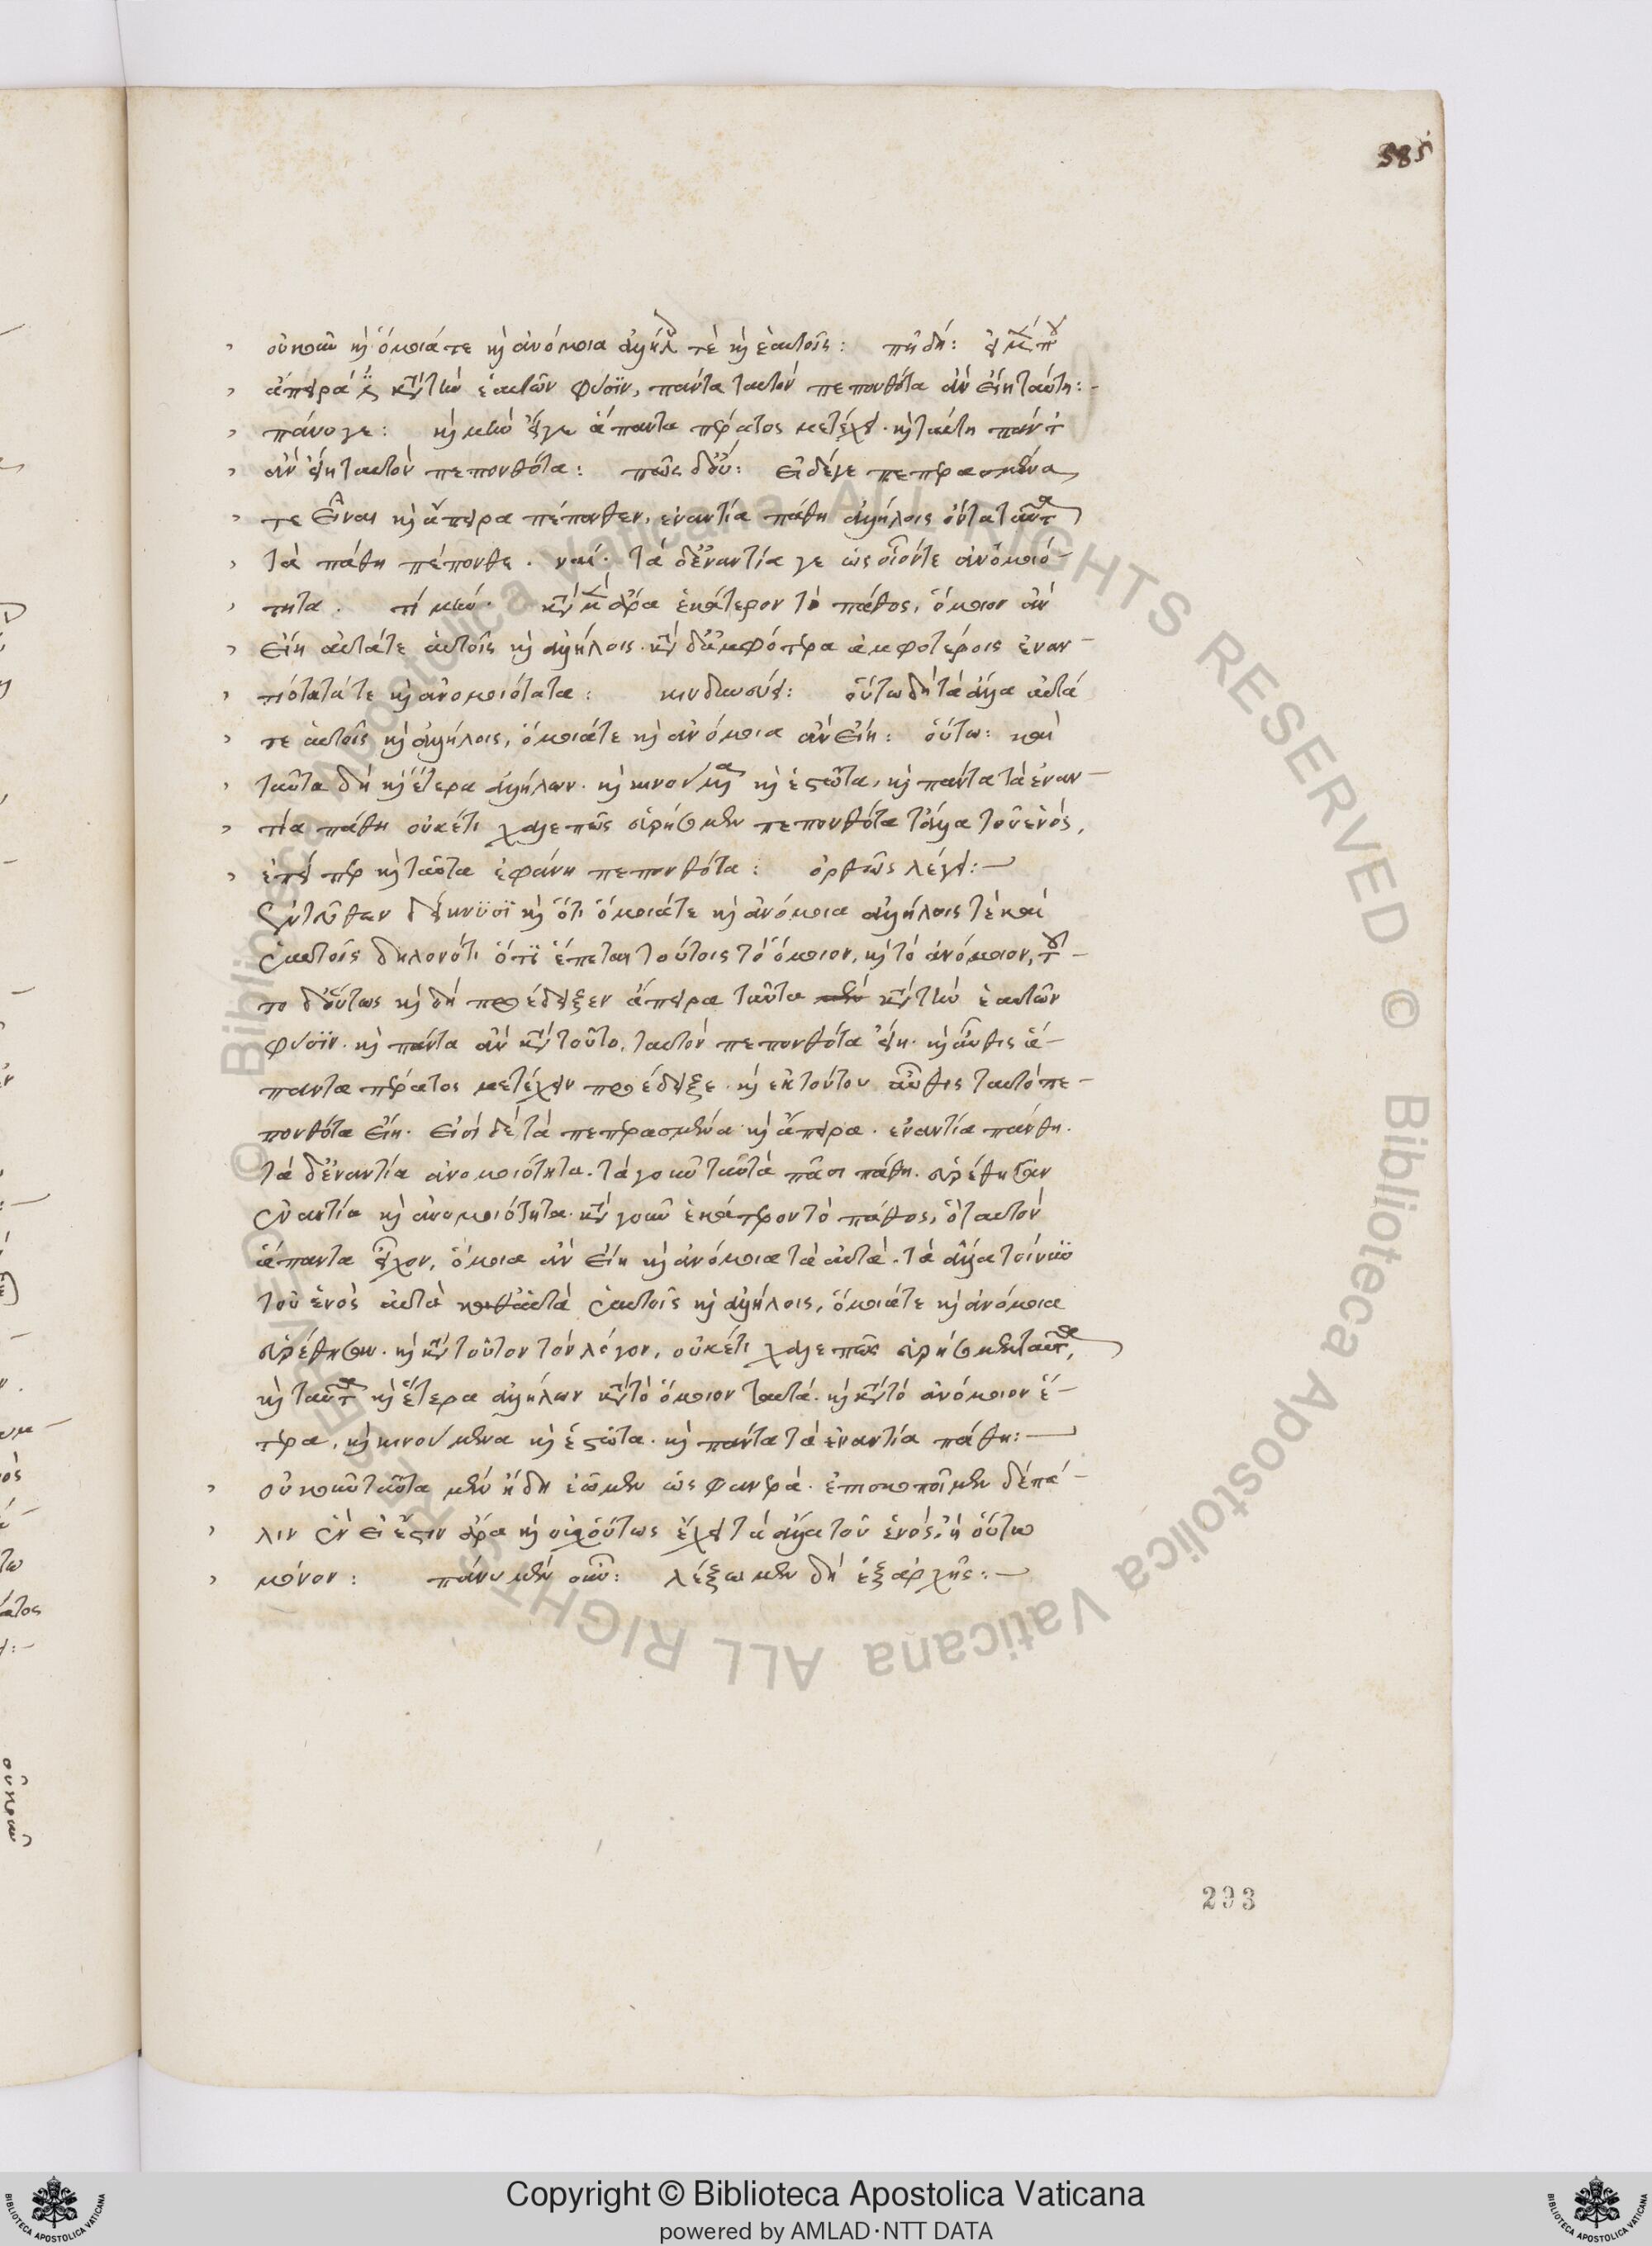 585
οὐκοῦν καὶ ὅμοιά τε καὶ ἀνόμοια ἀλλήλοις τὲ καὶ ἑαυτοῖς: πῆ δή: ᾗ μέν που
ἄπειρά ἐστι κατὰ τὴν ἑαυτῶν φύσϊν, πάντα ταυτὸν πεπονθότα ἂν εἴη ταύτῃ:-
πάνυ γε: καὶ μὴν ᾗ γε ἅπαντα πέρατος μετέχει. καὶ ταύτη πάντ
ἂν εἴη ταυτὸν πεπονθότα: πῶς δ' οὔ: εἰ δέ γε πεπερασμένα
τε εἶναι καὶ ἄπειρα πέπονθεν, ἐναντία πάθη ἀλλήλοις ὄντα ταῦτα
τὰ πάθη πέπονθε. ναί. τὰ δ' ἐναντία γε ὡς οἷόν τε ἀνομοιό-
τητα. τί μήν. κατὰ μὲν ἄρα ἑκάτερον τὸ πάθος, ὅμοιον ἂν
εἴη αὐτά τε αὑτοῖς καὶ ἀλλήλοις. κατὰ δ' ἀμφότερα ἀμφοτέροις ἐναν-
τιότατά τε καὶ ἀνομοιότατα: κινδυνεύει: οὕτω δὴ τὰ ἄλλα αὐτά
τε αὑτοῖς καὶ ἀλλήλοις, ὅμοιά τε καὶ ἀνόμοια ἂν εἴη: οὕτω: καὶ
ταῦτα δὴ καὶ ἕτερα ἀλλήλων. καὶ κινούμενα καὶ ἑστῶτα, καὶ πάντα τὰ ἐναν-
τία πάθη οὐκέτι χαλεπῶς εὑρήσομεν πεπονθότα τἆλλα τοῦ ἑνὸς,
ἐπείπερ καὶ ταῦτα ἐφάνη πεπονθότα: ὀρθῶς λέγεις:-
ἐντεῦθεν δείκνυσϊ καὶ ὅτι ὅμοιά τε καὶ ἀνόμοια ἀλλήλοις τὲ καὶ
ἑαυτοῖς δηλονότι ὅτϊ ἕπεται τούτοις τὸ ὅμοιον, καὶ τὸ ἀνόμοιον, τοῦ-
το δ' οὕτως καὶ δὴ προέδειξεν ἄπειρα ταῦτα κατὰ τὴν ἑαυτῶν
φύσϊν. καὶ πάντα ἂν κατὰ τοῦτο, ταυτὸν πεπονθότα εἴη. καὶ αὖθις ἅ-
παντα πέρατος μετέχειν προέδειξε. καὶ ἐκ τούτου αὖθις ταυτὸ πε-
πονθότα εἴη. εἰσὶ δὲ τὰ πεπερασμένα καὶ ἄπειρα. ἐναντία πάνθη.
τὰ δ' ἐναντία ἀνομοιότητα. τὰ γοῦν ταῦτὰ πᾶσι πάθη. εὑρέθησαν
ἐναντία καὶ ἀνομοιότητα. κατὰ γοῦν ἑκάτερον τὸ πάθος, ὃ ταυτὸν
ἅπαντα εἶχον, ὅμοια ἂν εἴη καὶ ἀνόμοια τὰ αὐτά. τὰ ἄλλα τοίνυν
τοῦ ἑνὸς αὐτὰ καθ' αὑτὰ ἑαυτοῖς καὶ ἀλλήλοις, ὅμοιά τε καὶ ἀνόμοια
εὑρέθησαν. καὶ κατὰ τοῦτον τὸν λόγον, οὐκέτι χαλεπῶς εὑρήσομεν ταῦτα,
καὶ ταῦτα καὶ ἕτερα ἀλλήλων κατὰ τὸ ὅμοιον ταυτά. καὶ κατὰ τὸ ἀνόμοιον ἕ-
τερα, καὶ κινούμενα καὶ ἑστῶτα. καὶ πάντα τὰ ἐναντία πάθη:-
οὐκοῦν ταῦτα μὲν ἤδη ἐῶμεν ὡς φανερά. ἐπισκοποῖμεν δὲ πά-
λιν ἓν εἰ ἔστιν ἆρα καὶ οὐχ οὕτως ἔχει τὰ ἄλλα τοῦ ἑνὸς, ἢ οὕτω
μόνον: πάνυ μὲν οὖν: λέξωμεν δὴ ἐξ ἀρχῆς:-
293